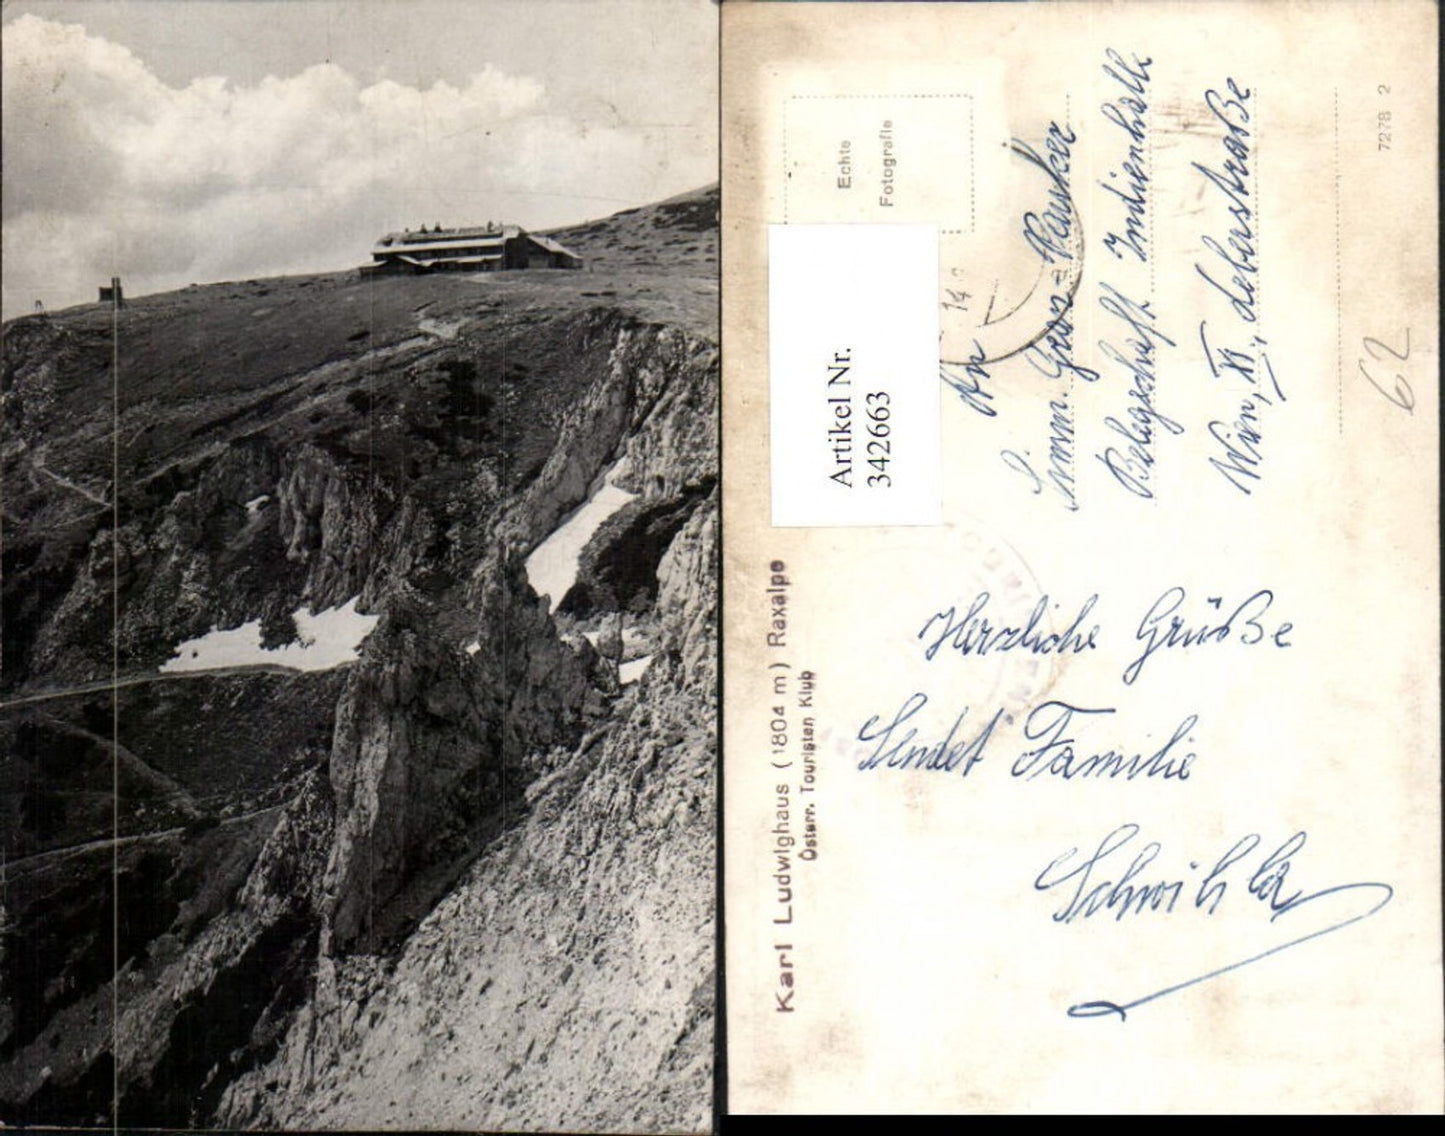 Echte
Fotografie
7278 2
Artikel Nr.
342663
An
Simm. Graz-Pauker
Belegschaft Indienhalle
Wien, XI., Leberstraße
62
Karl Ludwighaus (1804 m) Raxalpe
Österr. Touristen Klub
Herzliche Grüße
Sendet Familie